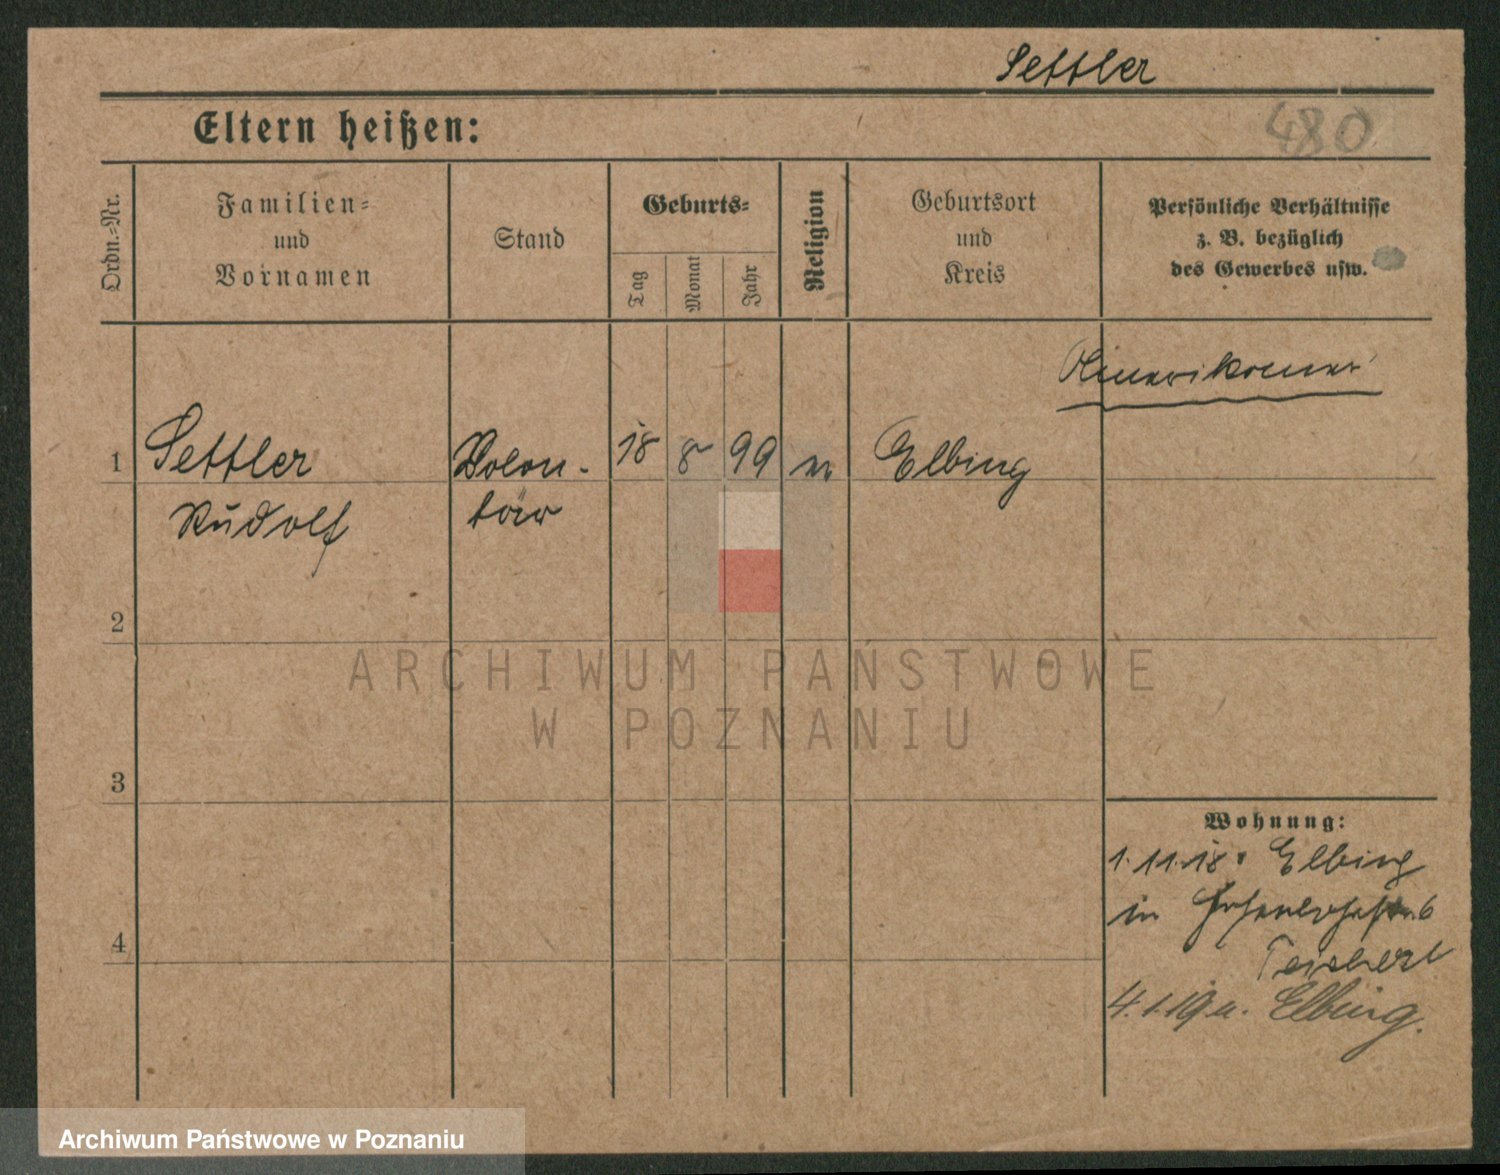 Settler
480
Eltern heißen:
Ordn.-Nr.
Familien-
und
Vornamen
Stand
Geburts-
Tag
Monat
Jahr
Religion
Geburtsort
und
Kreis
Persönliche Verhältnisse
z. B. bezüglich
des Gewerbes usw.
Amerikaner
1
Settler
Rudolf
Volon-
tär
18
8
99
Elbing
2
ARCHIWUM PAŃSTWOWE
W POZNANIU
3
4
Wohnung:
1.11.18 Elbing
in 6
4.1.19 a. Elbing.
Archiwum Państwowe w Poznaniu